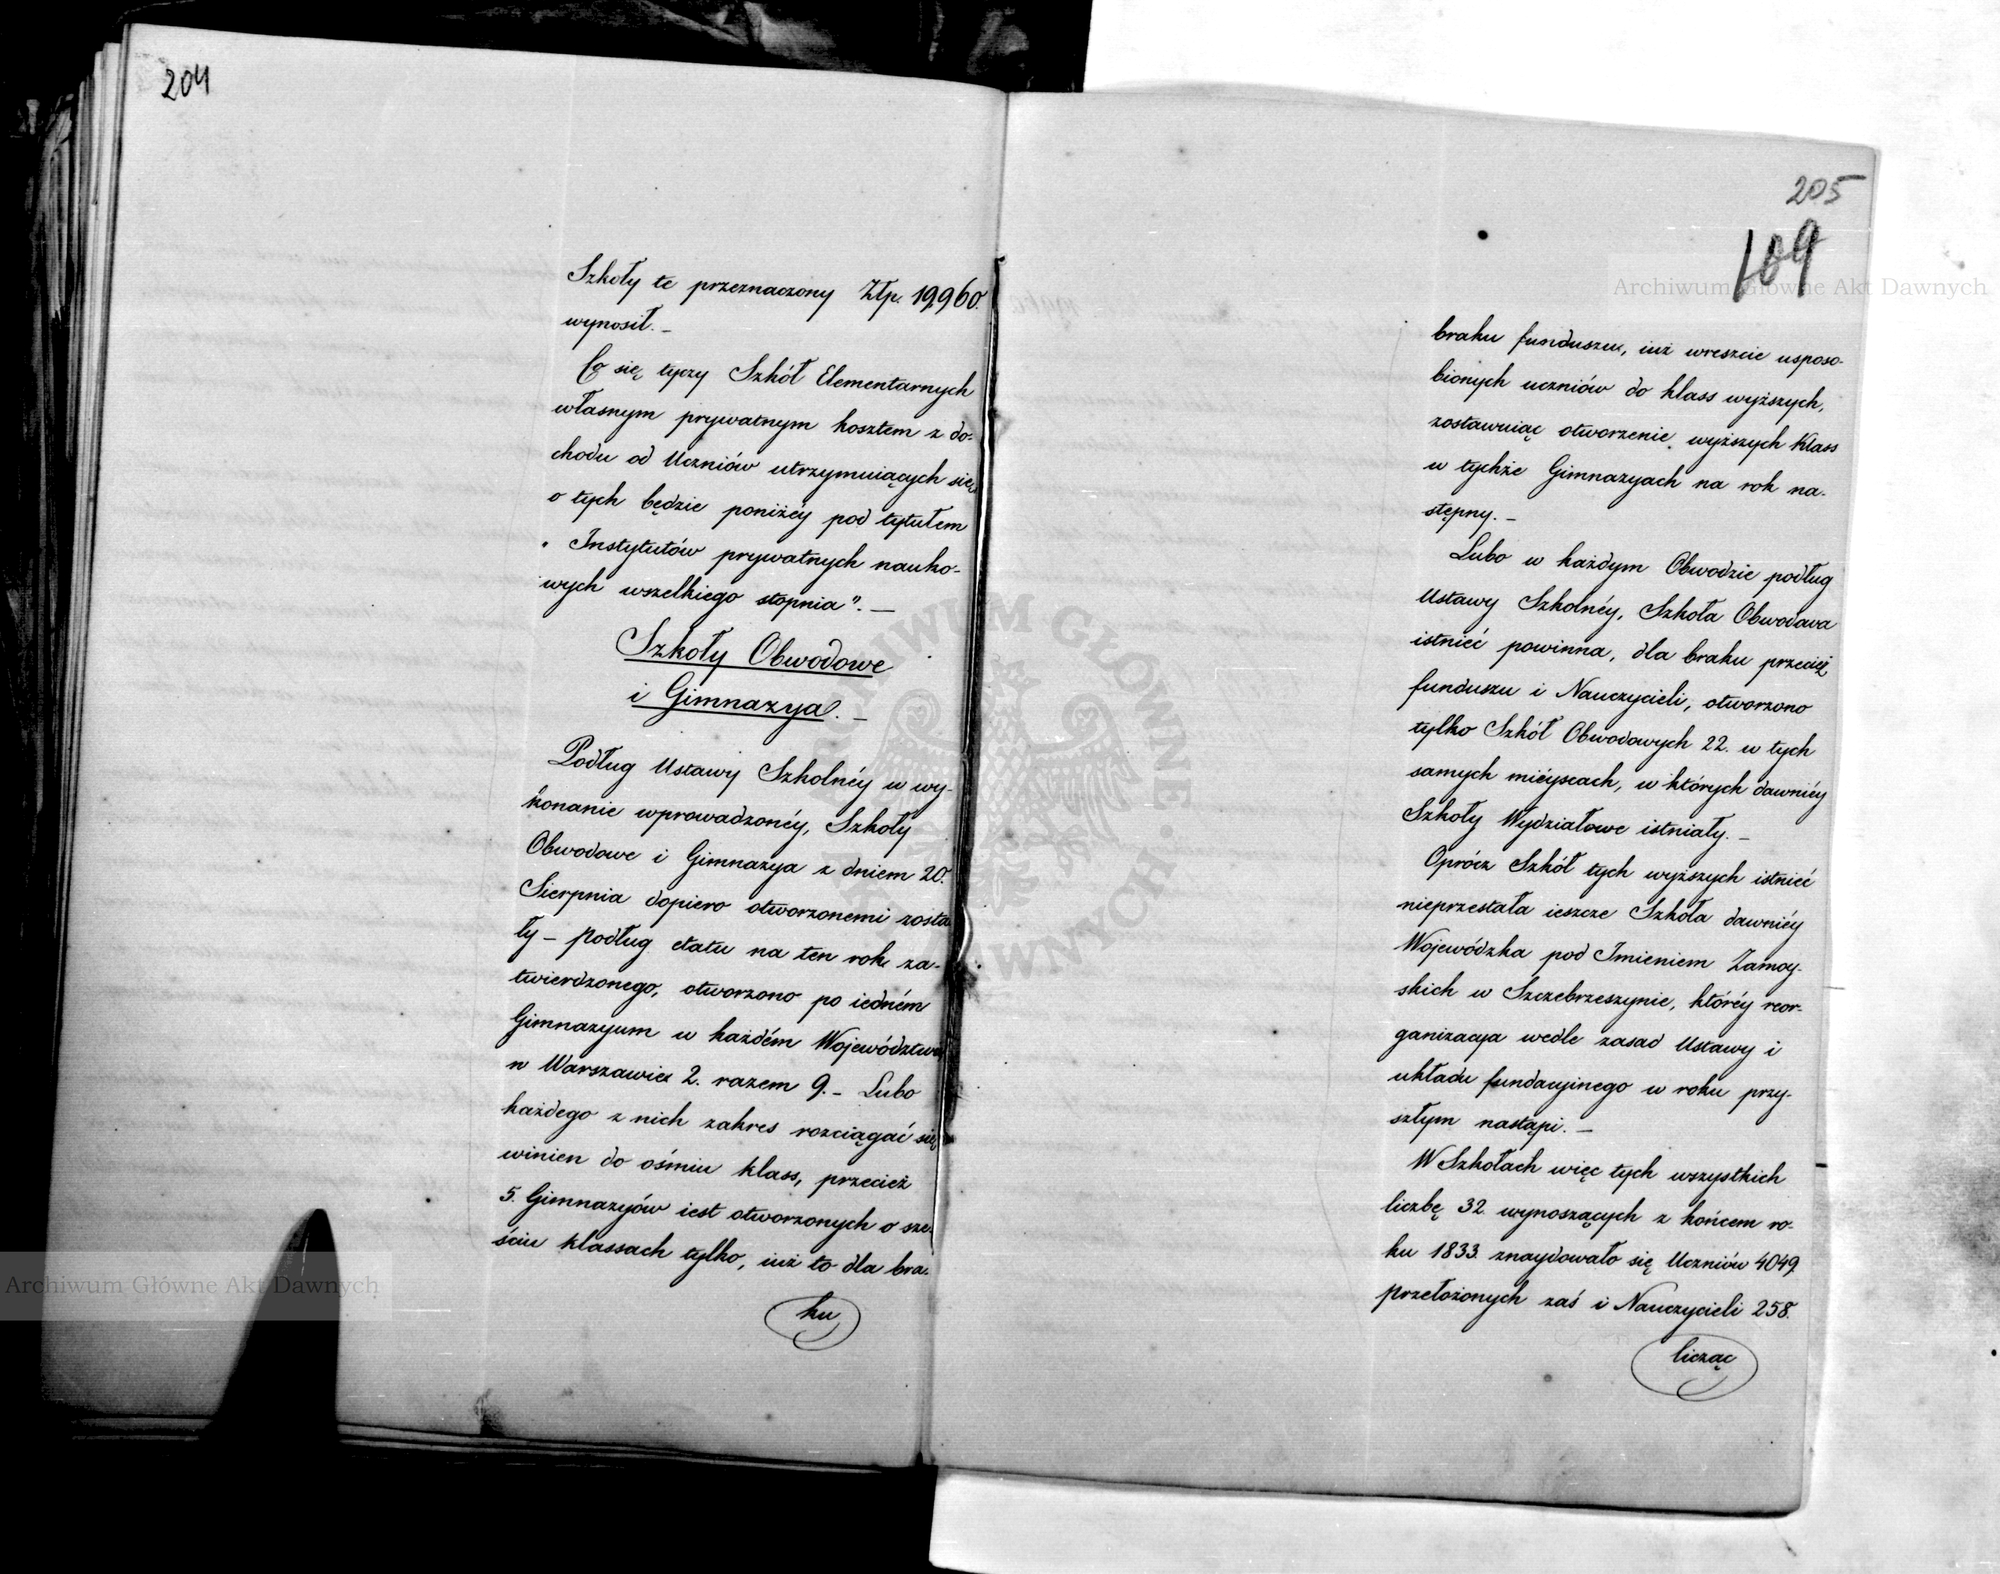 204
Szkoły te przeznaczony Złp. 19960.
wynosił. –
Co się tyczy Szkół Elementarnych
własnym prywatnym kosztem z do-
chodu od Uczniów utrzymuiących się,
o tych będzie poniżéy pod tytułem
„ Instytutów prywatnych nauko-
wych wszelkiego stopnia”. –
Szkoły Obwodowe
i Gimnazya. –
Podług Ustawy Szkolnéy w wy-
konanie wprowadzonéy, Szkoły
Obwodowe i Gimnazya z dniem 20.
Sierpnia dopiero otworzonemi zosta-
ły – podług etatu na ten rok za-
twierdzonego, otworzono po iedném
Gimnazyum w każdém Województwie
w Warszawie 2. razem 9. – Lubo
każdego z nich zakres rozciągać się
winien do ośmiu klass, przecież
5. Gimnazyów iest otworzonych o sze-
ściu klassach tylko, iuż to dla bra-
ku
205
109
braku funduszu, iuż wreszcie usposo-
bionych uczniów do klass wyższych,
zostawuiąc otworzenie wyższych Klass
w tychże Gimnazyach na rok na-
stępny. –
Lubo w każdym Obwodzie podług
Ustawy Szkolnéy, Szkoła Obwodowa
istnieć powinna, dla braku przecież
funduszu i Nauczycieli, otworzono
tylko Szkół Obwodowych 22. w tych
samych mieyscach, w których dawniéy
Szkoły Wydziałowe istniały. –
Oprócz Szkół tych wyższych istnieć
nieprzestała ieszcze Szkoła dawniéy
Wojewódzka pod Imieniem Zamoy-
skich w Szczebrzeszynie, któréy reor-
ganizacya wedle zasad Ustawy i
układu fundacyinego w roku przy-
szłym nastąpi. –
W Szkołach więc tych wszystkich
liczbę 32 wynoszących z końcem ro-
ku 1833 znaydowało się Uczniów 4049.
przełożonych zaś i Nauczycieli 258.
licząc
Archiwum Główne Akt Dawnych
Archiwum Główne Akt Dawnych
ARCHIWUM GŁÓWNE AKT DAWNYCH